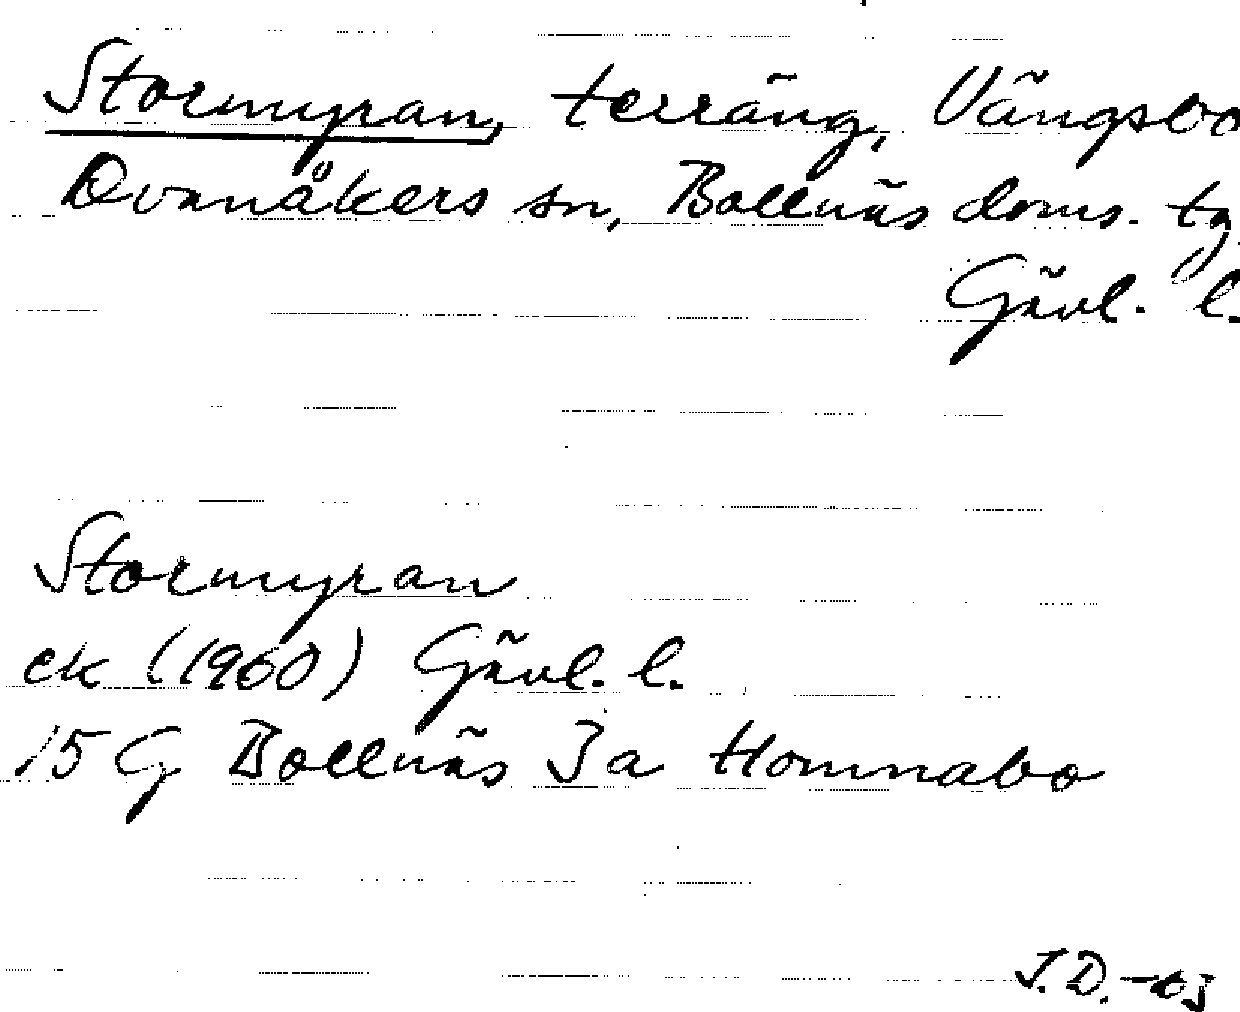 Stormyran, terräng, Vängsbo
Ovanåkers sn, Bollnäs doms. tg
Gävl. l.
Stormyran
ek (1960) Gävl. l.
15 G Bollnäs 3 a Homnabo
J.D. -63